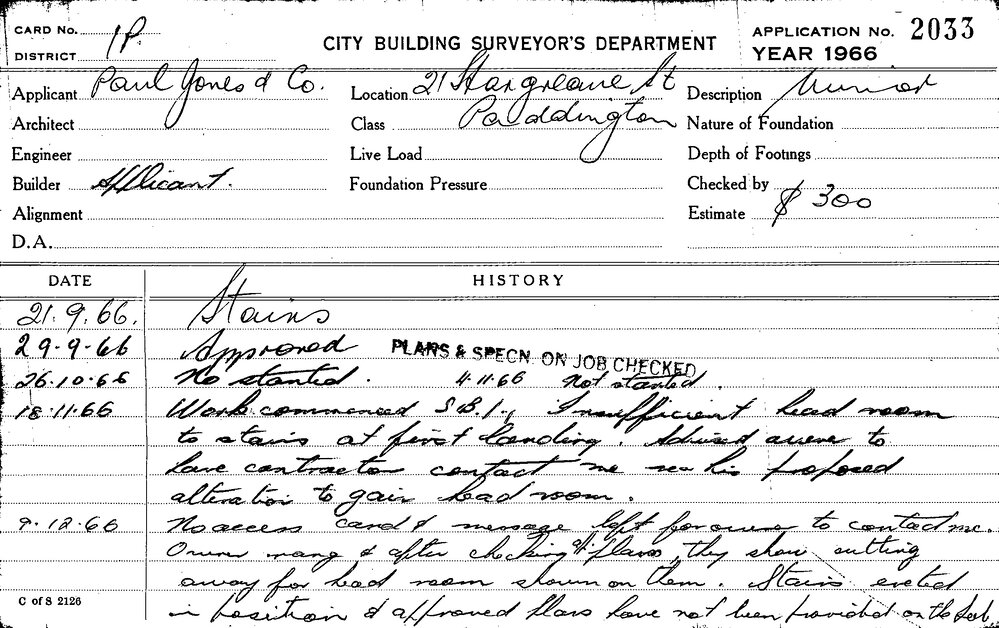 CARD No. 1P. APPLICATION No. 2033
DISTRICT CITY BUILDING SURVEYOR'S DEPARTMENT YEAR 1966
Applicant Paul Jones & Co. Location 21 Hargreave St Description Minor
Architect Class Paddington Nature of Foundation
Engineer Live Load Depth of Footings
Builder Applicant. Foundation Pressure Checked by
Alignment Estimate $ 300
D.A.
DATE HISTORY
21.9.66. Stairs
29-9-66 Approved PLANS & SPECN. ON JOB CHECKED
26-10-66 No started. 4.11.66 Not started.
18.11.66 Work commenced S.B.I., Insufficient head room
to stairs at first landing. Advised owner to
have contractor contact me re his proposed
alteration to gain head room.
9.12.66 No access card & message left for owner to contact me.
Owner rang & after checking off plans, they show cutting
away for head room shown on them. Stairs erected
in position & approved plans have not been provided on the Job,
C of S 2126